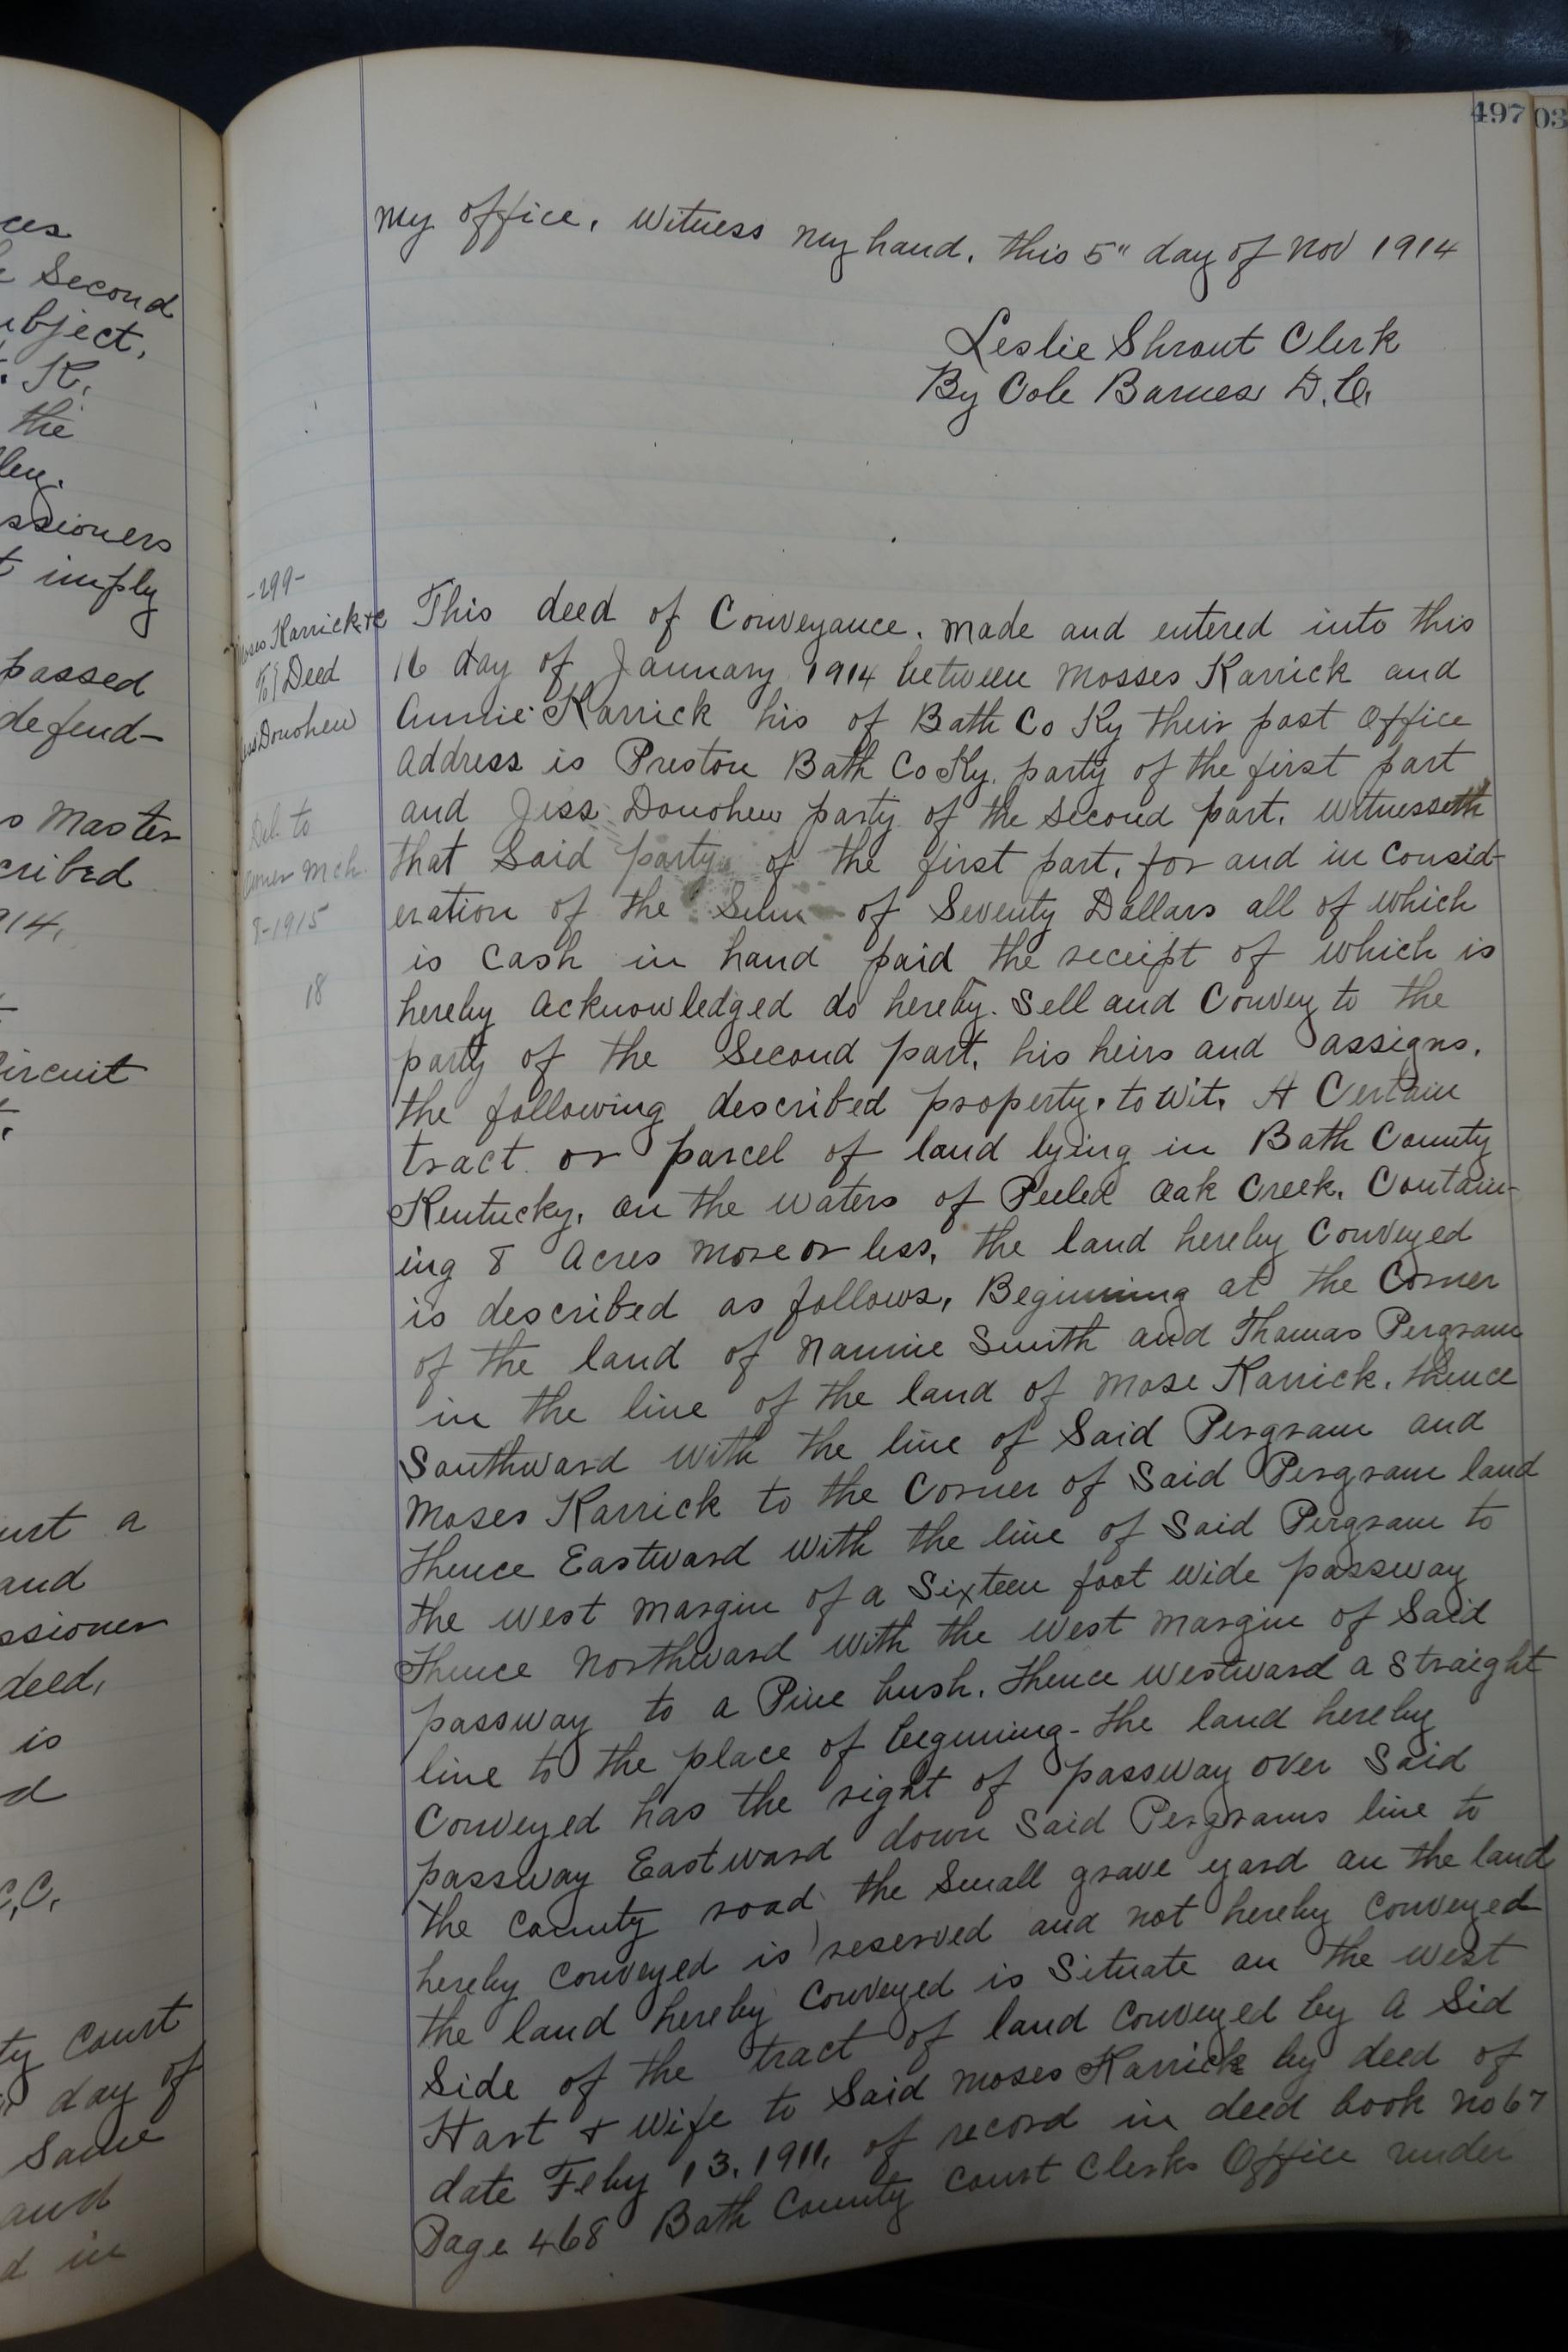 ces
e Second
ubject,
. K.
the
ley.
ssioners
t imply
passed
defend-
s Master
cribed
914,
ircuit
urt a
and
ssioner
deed,
is
d
C.C.
ty Court
day of
Same
and
d in
497
03
My office, Witness my hand, this 5" day of Nov 1914
Leslie Shrout Clerk
By Cole Barnes D.C.
-299-
Moses Karrick &c
To } Deed
Jess Donohew
Del. to
owner Mch.
8-1915
18
This deed of Conveyance, made and entered into this
16 day of January 1914 between Mosses Karrick and
Annie Karrick his of Bath Co Ky their post office
address is Preston Bath Co Ky. party of the first part
and Jess Donohew party of the Second part, Witnesseth
that Said party of the first part, for and in Consid-
eration of the Sum of Seventy Dollars all of which
is Cash in hand paid the receipt of which is
hereby acknowledged do hereby. Sell and Convey to the
party of the Second part, his heirs and assigns,
the following described property, to wit, A Certain
tract or parcel of land lying in Bath County
Kentucky, on the waters of Peeled Oak Creek, Contain-
ing 8 Acres more or less, the land hereby Conveyed
is described as follows, Beginning at the Corner
of the land of Nannie Smith and Thomas Pergram
in the line of the land of Mose Karrick, thence
Southward with the line of Said Pergram and
Moses Karrick to the Corner of Said Pergram land
thence Eastward with the line of Said Pergram to
the west margin of a Sixteen foot wide passway
thence Northward with the west margin of Said
passway to a Pine bush, thence westward a straight
line to the place of begining - the land hereby
Conveyed has the right of passway over Said
passway Eastward down Said Pergrams line to
the County road the Small grave yard on the land
hereby Conveyed is reserved and not hereby Conveyed
the land hereby Conveyed is Situate on the west
Side of the tract of land Conveyed by A Sid
Hart & wife to Said Moses Karrick by deed of
date Feby 13, 1911, of record in deed book No 67
Page 468 Bath County Court Clerks Office under